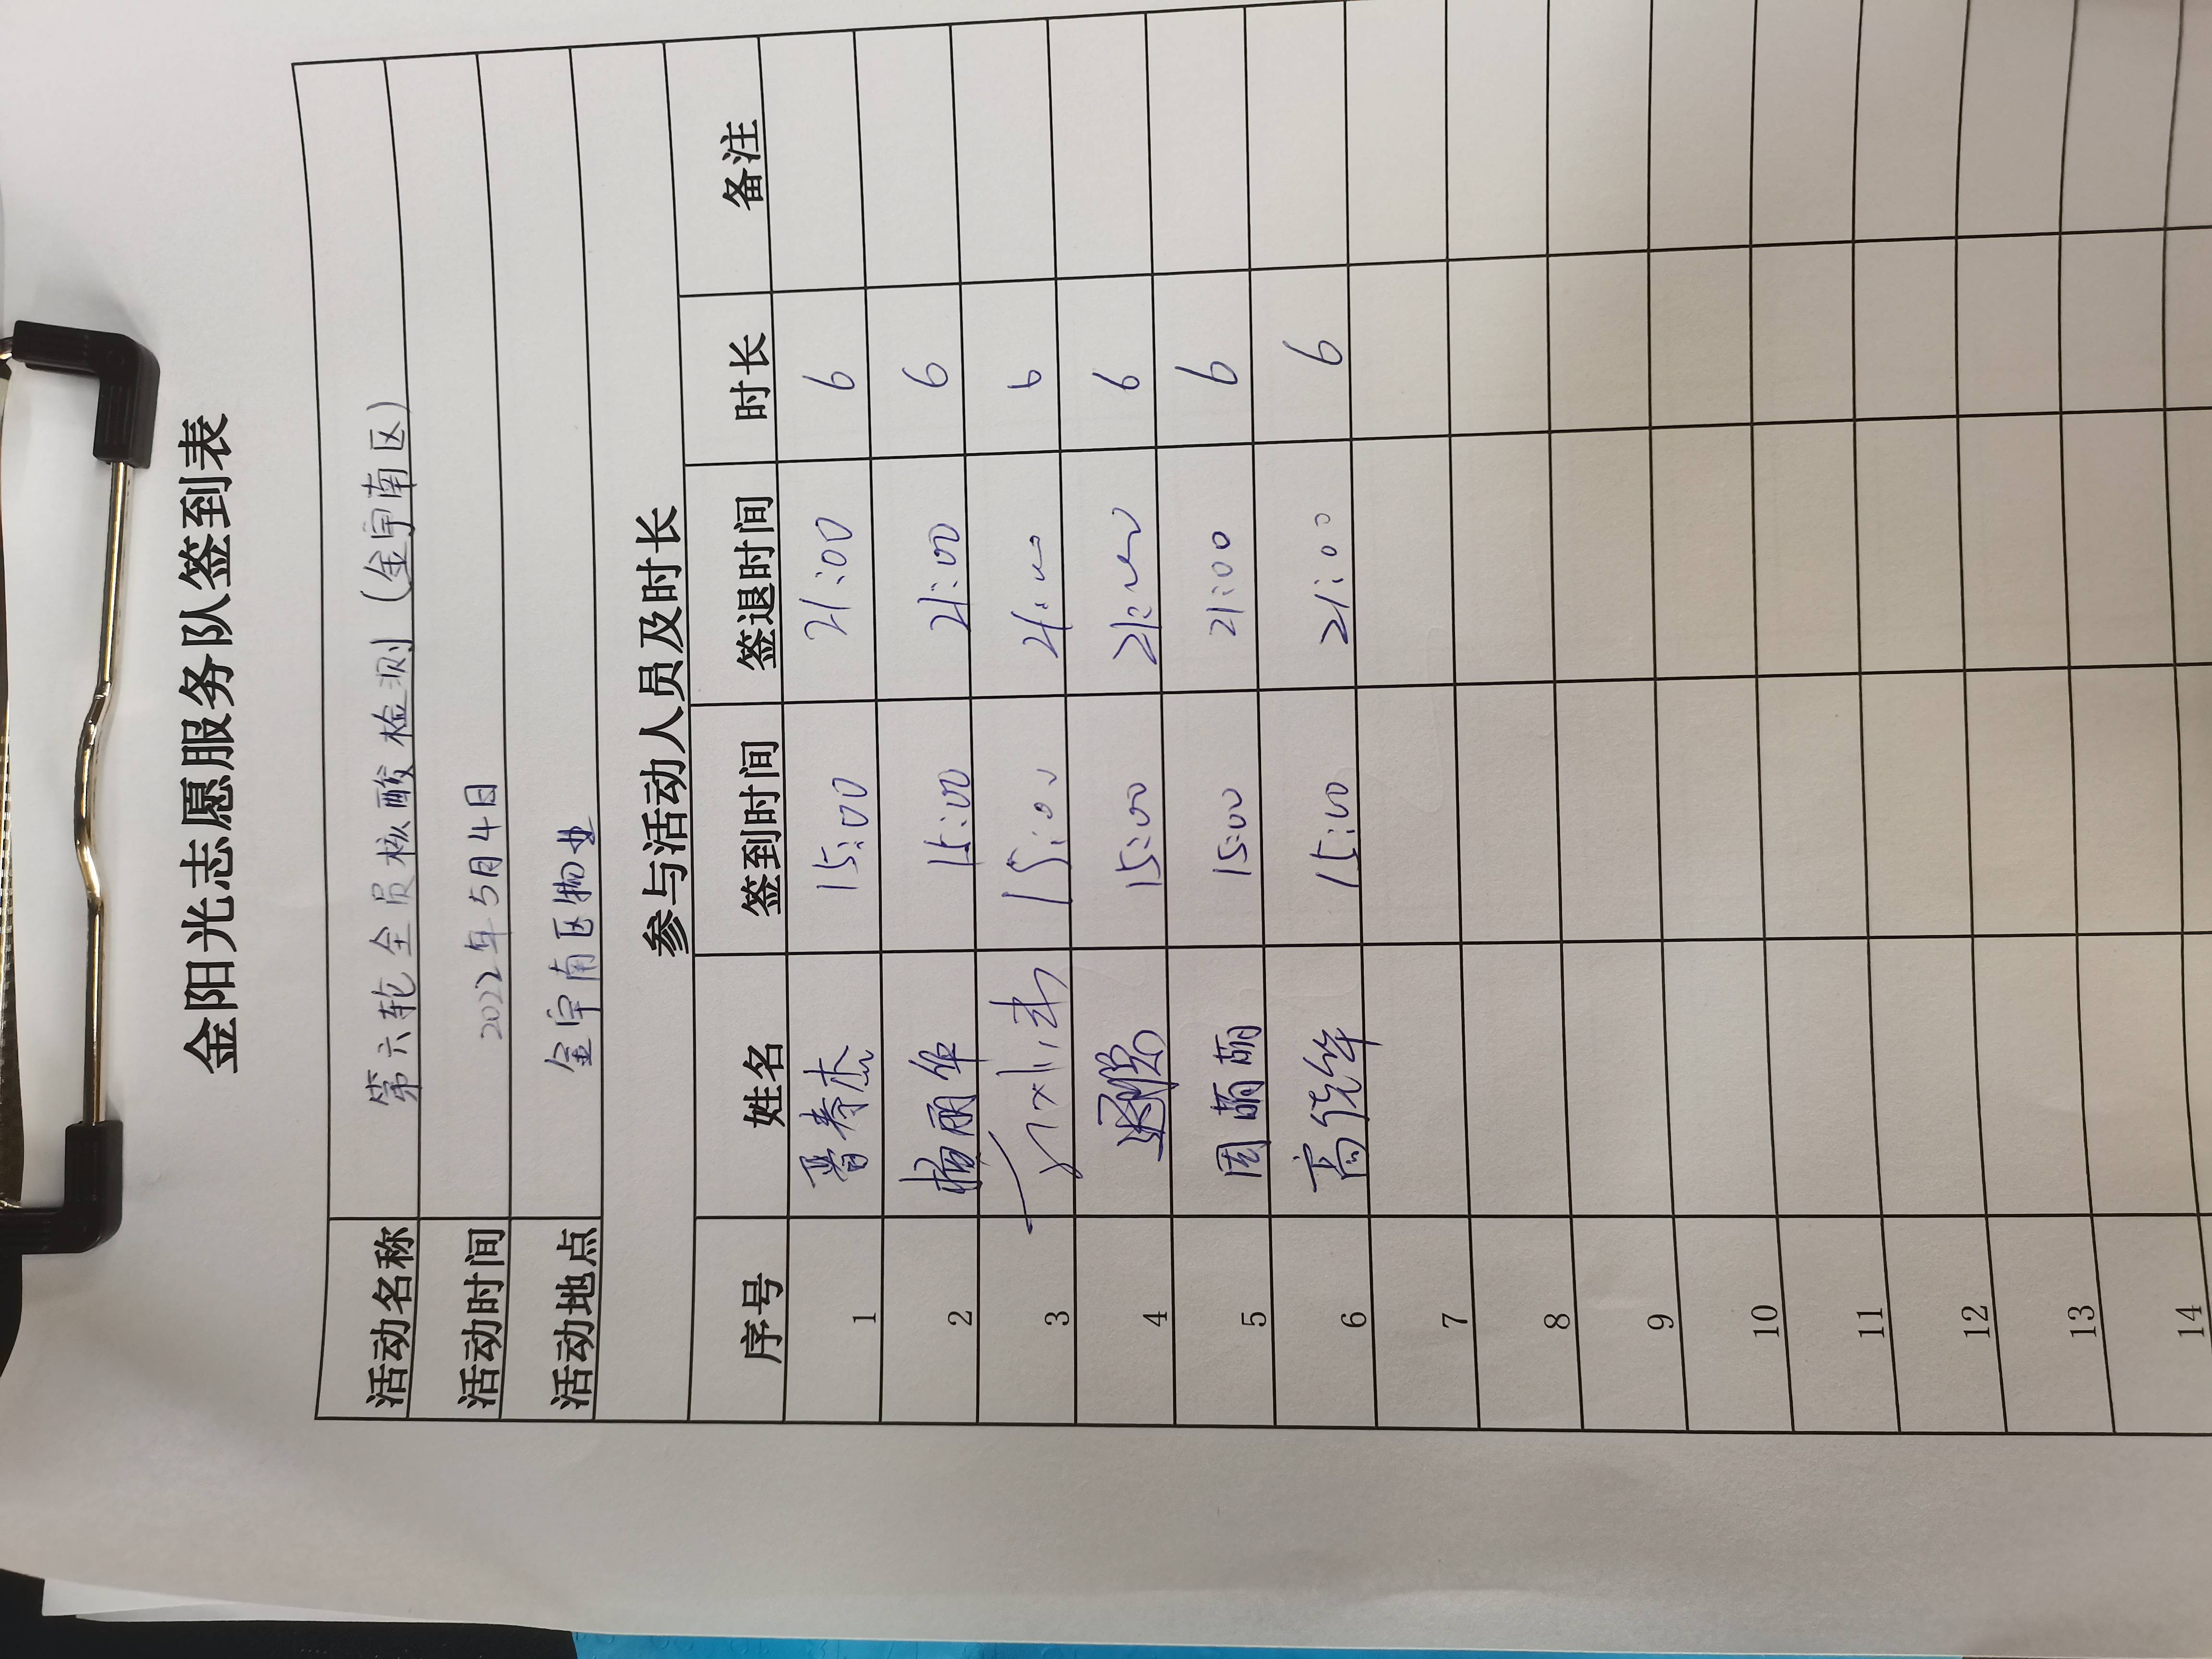 金阳光志愿服务队签到表
活动名称 第六轮全员核酸检测(金宇南区)
活动时间 2022年5月4日
活动地点 金宇南区物业
参与活动人员及时长
序号 姓名 签到时间 签退时间 时长 备注
1 晋寿杰 15:00 21:00 6
2 杨丽华 15:00 21:00 6
3 15:00 21:00 6
4 15:00 21:00 6
5 周萌萌 15:00 21:00 6
6 高 15:00 21:00 6
7
8
9
10
11
12
13
14